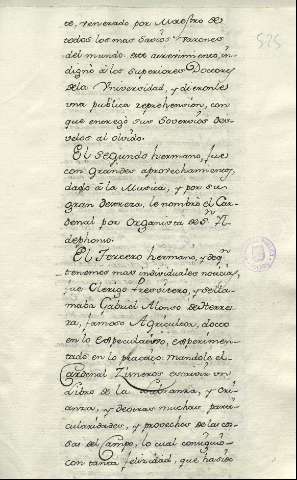 te, venerado por Maestro de
todos los mas Sacros Varones
del mundo. este atrevimiento, in-
dignò à los superiores Doctores
de la Vniversidad, y dieronles
vna publica reprehension, con
que entregò sus Sovervios des-
velos al olvido.
El segundo hermano, fue
con grandes aprovechamientos,
dado à la Musica, y por su
gran destreza, le nombrò el Car-
denal por Organista de Sn Il
dephonso.
El Tercero hermano, y de qn
tenemos mas individuales noticias,
fue Clerigo Presvitero, y se lla-
maba Gabriel Alonso de Herre-
ra, famoso Agricultor, docto
en lo especulativo, experimen-
tado en lo practico: mandole el
Cardenal Zisneros escrivir vn
Libro de la labranza, y cri
anza, y de otras muchas parti-
cularidades, y provechos de las co-
sas del Campo, lo cual consiguiò
con tanta felicidad, que ha sido